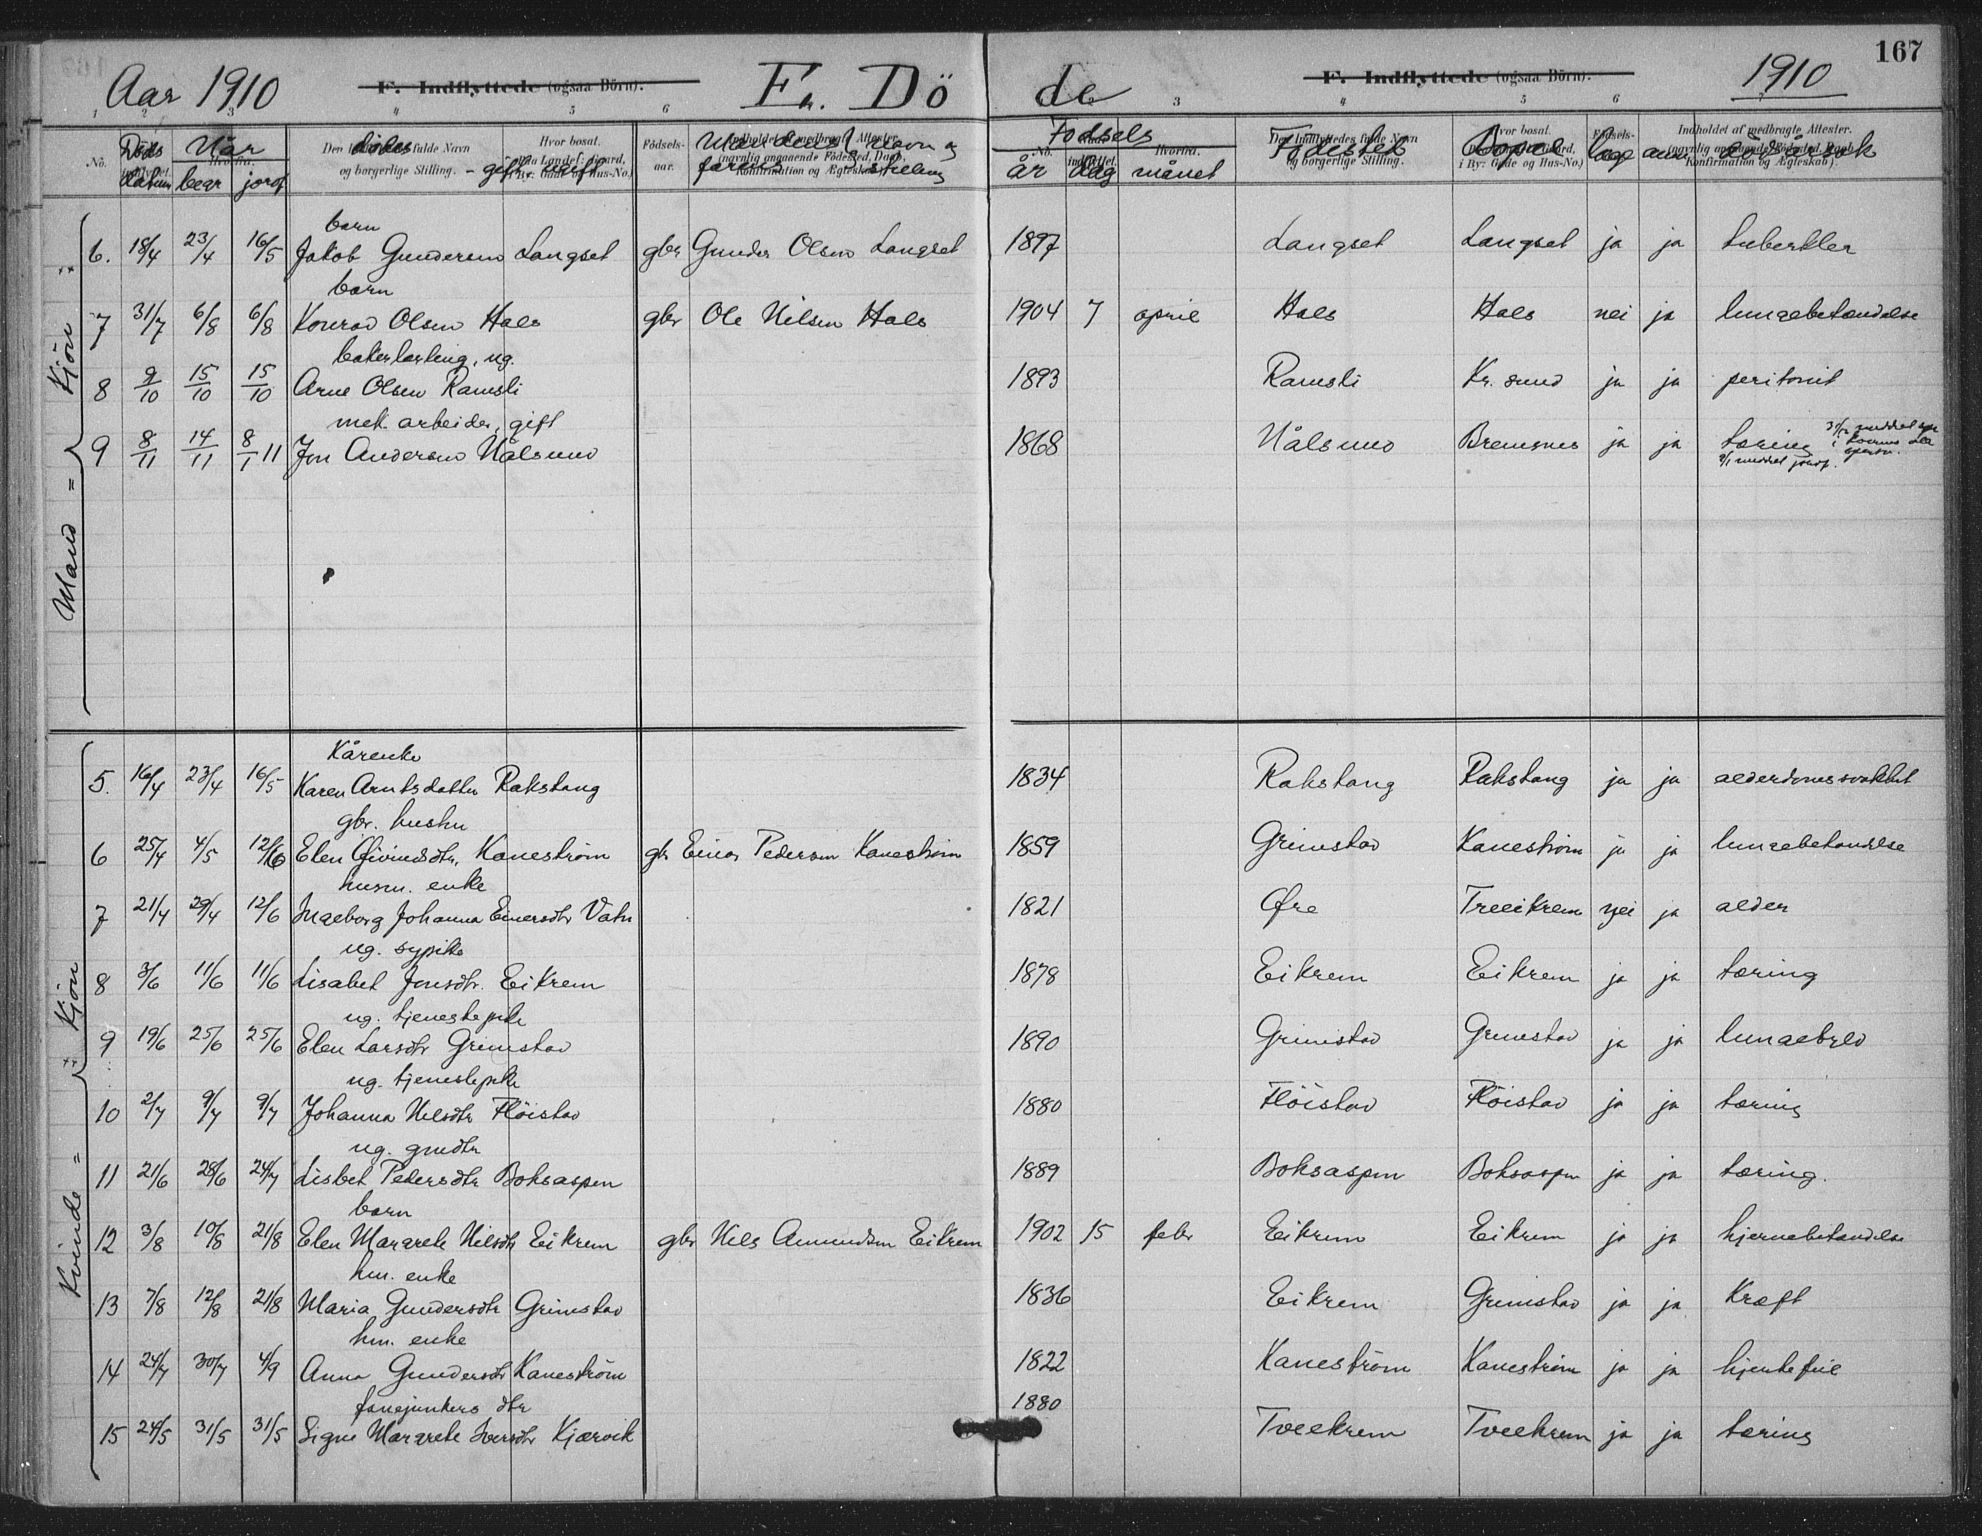 167
Aar 1910 F. Indflyttede (ogsaa Börn). F. Döde F. Indflyttede (ogsaa Börn). 1910
1 2 3 4 5 6 3 4 5 6
No. Döds datum Når begr. jordf. Den dödes fulde Navn og borgerlige Stilling. - gift, Hvor bosat. Födsels-aar. Mandens navn og farens stilling
Födsels år dag månet Födested Bopæl læge anm. dödsårsak
Mand = Kjön
barn
6. 18/4 23/4 16/5 Jakob Gundersen Langset gbr Gunder Olsen Langset 1897 Langset Langset ja ja tuberkler
barn
7 31/7 6/8 6/8 Konrad Olsen Hals gbr Ole Nilsen Hals 1904 7 april Hals Hals nei ja lungebetændelse
bakerlærling, ug.
8 9/10 15/10 15/10 Arne Olsen Ramsli 1893 Ramsli Kr. sund ja ja peritonit
mek. arbeider, gift
9 8/11 14/11 8/1 11 Jon Andersen Nålsund 1868 Nålsund Bremsnes ja ja tæring
Kvinde = Kjön
Kårenke
5. 16/4 23/4 16/5 Karen Arntsdatter Rakstang 1834 Rakstang Rakstang ja ja alderdomssvakhet
gbr. hustru
6 25/4 4/5 12/6 Elen Öivindsdtr. Kaneström gbr Einar Pedersen Kaneström 1859 Grimstad Kaneström ja ja lungebetændelse
husm. enke
7 21/4 29/4 12/6 Ingeborg Johanna Einersdtr Vatn 1821 Öre Treeikrem nei ja alder
ug. sypike
8 3/6 11/6 11/6 Lisabet Jonsdtr. Eikrem 1878 Eikrem Eikrem ja ja tæring
ug. tjenestepike
9 19/6 25/6 25/6 Elen Larsdtr Grimstad 1890 Grimstad Grimstad ja ja lungebyld
ug. tjenestepike
10 2/7 9/7 9/7 Johanna Nilsdtr Flöistad 1880 Flöistad Flöistad ja ja tæring
ug. gmdtr
11 21/6 28/6 24/7 Lisbet Pedersdtr Boksaspen 1889 Boksaspen Boksaspen ja ja tæring.
barn
12 3/8 10/8 21/8 Elen Margrete Nilsdtr Eikrem gbr Nils Amundsen Eikrem 1902 15 febr Eikrem Eikrem ja ja hjernebetændelse
hm. enke
13 7/8 12/8 21/8 Maria Gundersdtr Grimstad 1836 Eikrem Grimstad ja ja Kræft
hm. enke
14 24/7 30/7 4/9 Anna Gundersdtr Kaneström 1822 Kaneström Kaneström ja ja hjertefeil
fanejunkers dtr
15 24/5 31/5 31/5 Signe Margrete Iversdtr Kjærvik 1880 Tveekrem Tveekrem ja ja tæring